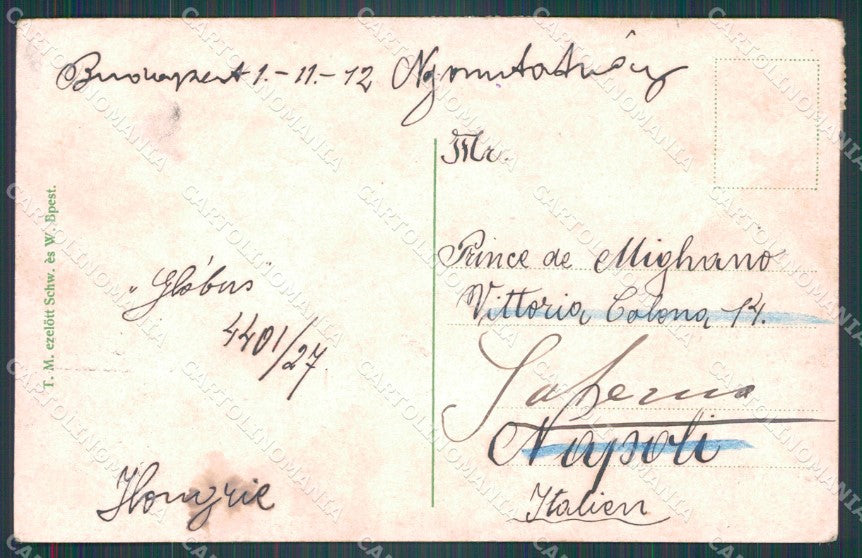 Budapest 1.-11.-12 Nyomtatvány
Mr.
T. M. ezelőtt Schw. és W. Bpest.
"Glóbus"
4401/27
Hongrie
Prince de Mighano
Vittoria Colona 14.
Napoli
Italien
CARTOLINOMANIA